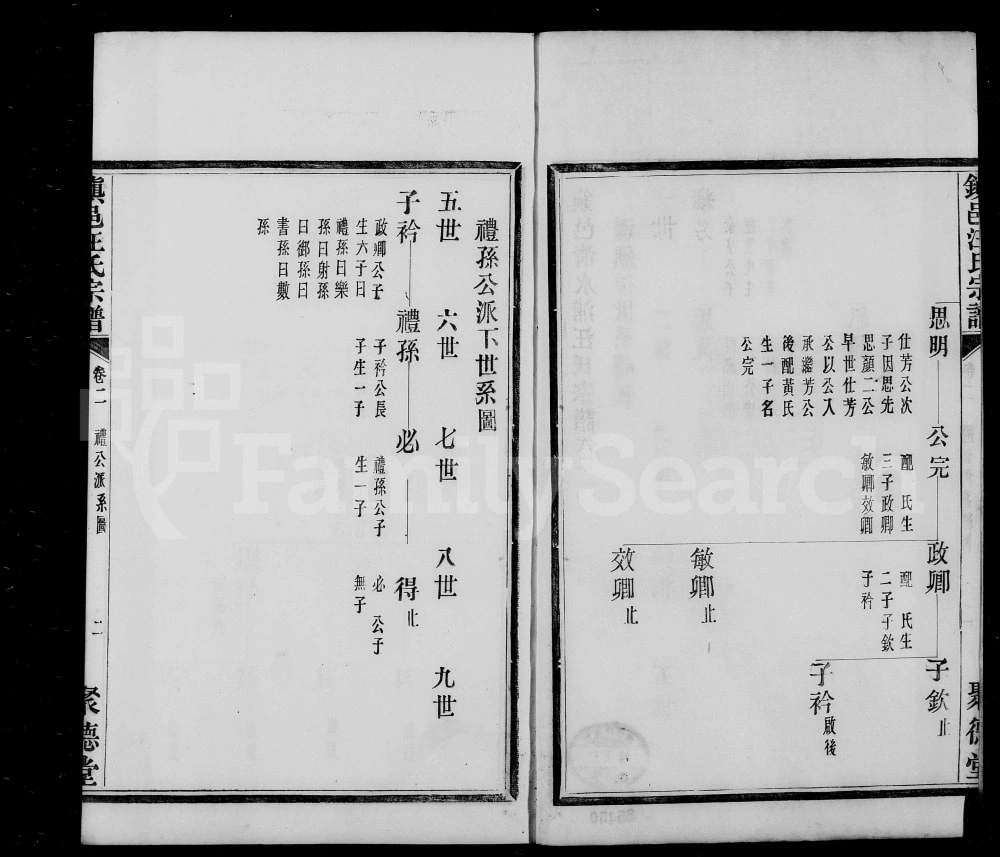 鎮邑汪氏宗譜
聚德堂
思明
仕芳公次
子因思先
思顔二公
早世仕芳
公以公入
承繼芳公
後配黃氏
生一子名
公完
公完
配　氏生
三子政卿
敏卿效卿
政卿
配　氏生
二子子欽
子衿
子欽止
子衿啟後
敏卿止
效卿止
禮孫公派下世系圖
五世　六世　七世　八世　九世
子衿
政卿公子
生六子曰
禮孫曰樂
孫曰射孫
曰御孫曰
書孫曰數
孫
禮孫
子衿公長
子生一子
必
禮孫公子
生一子
得止
必　公子
無子
鎮邑汪氏宗譜
卷二
禮公派系圖
二
聚德堂
FamilySearch